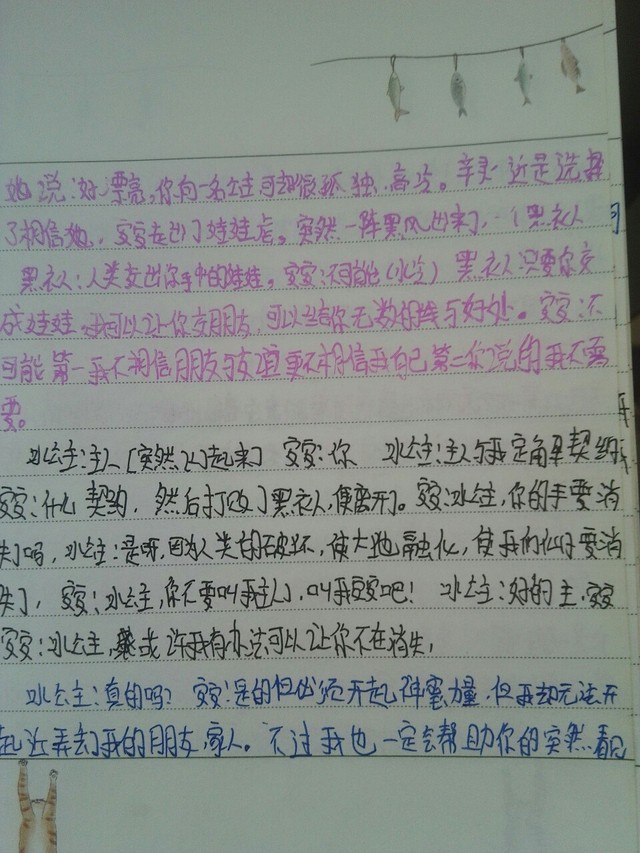 她说:好漂亮,你向一名公主可却很孤独、高冷。
了相信她,安安走出了娃娃店。突然一阵黑风出来了,一个黑衣人
黑衣人:人类交出你手中的娃娃。安安:不可能(冰冷)黑衣人:只要你交
成娃娃,我可以让你交朋友,可以给你无数的钱与好处。安安:不
可能第一我不相信朋友与友谊更不相信我自己第二你说的我不需
要。
冰公主:主人[突然飞起来] 安安:你 冰公主:主人与我定角单契约
安安:什么契约,然后打败了黑衣人,便离开了。安安:冰公主,你的手要消
失了吗,冰公主:是呀,因为人类的破坏,使大地融化,使我们似乎要消
失了,安安:冰公主,你不要叫我主人,叫我安安吧! 冰公主:好的主,安安
安安:冰公主,或许我有办法可以让你不在消失,
冰公主:真的吗? 安安:是的但必须开起神密力量,但我却无法开
起近弄却我的朋友,家人。不过我也一定会帮助你的突然看见